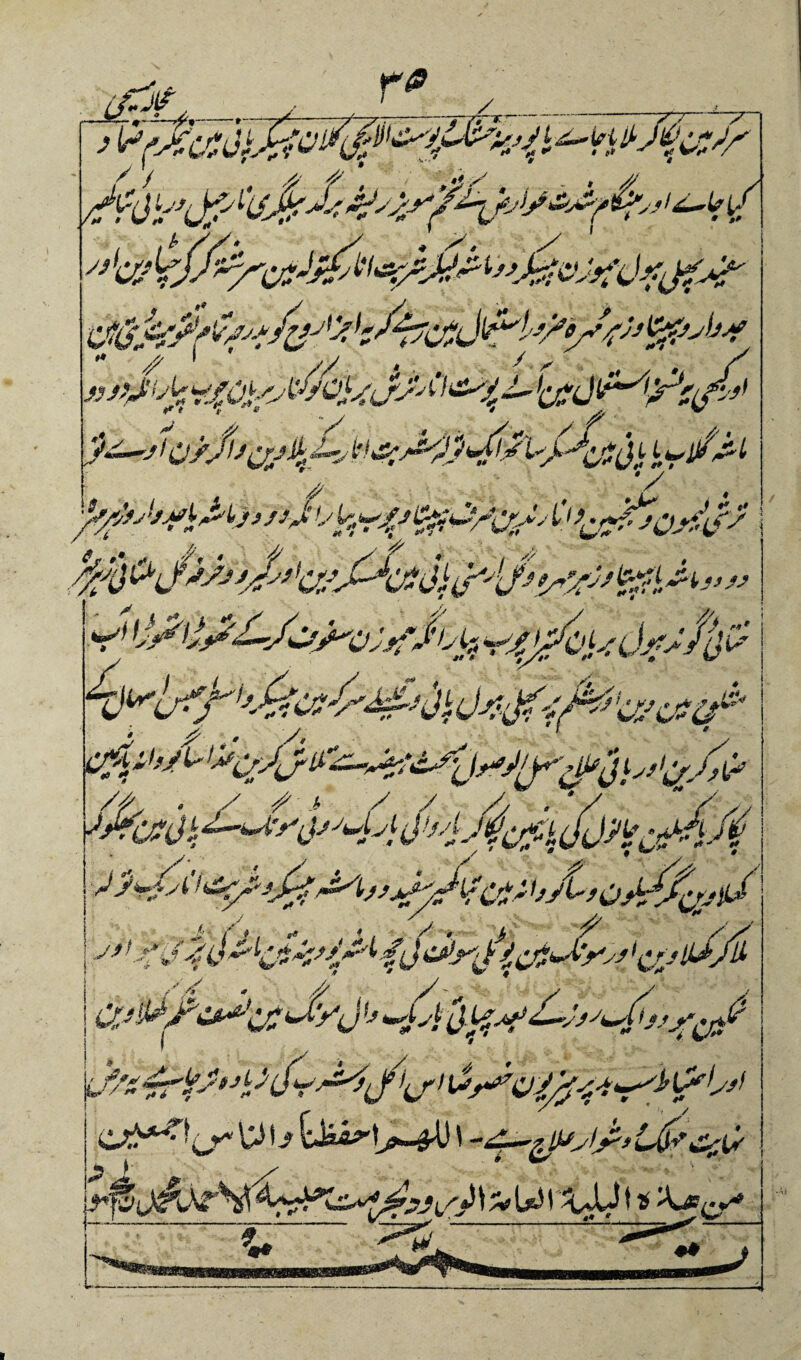 ۳۵
عجالہ مسیحی
سرکہ مین پکا کر لایا جاے یا پودینہ خشک پوست الایچی کلان پیسکر پانی مین نیمگرم ضماد
کیا جاے اور ہنگام شدت عوارض کے تخم مویز ریشہ برگد جیل دریائی
سفید بول ہموزن پیسکر دو ماشہ لیکر شربت انار یکتولہ مین سرشتہ کر کر چٹاوین اور
جدوار و پپیتا و زہر مہرہ ضرور استعمال مین رہے کہ یہ اجزا روح کو بدرجہ تمام تقویت دیتی ہین
اور کبھی یہ نسخہ استعمال مین آئے پوست انار ترش بریان کوکنار بریان چوب پارانگہ دو دو
ماشہ گلاب یا پانی مین گھسکر ساتھ ایک تولہ شربت انار کے پلاوین و اگر خون آوے تو
ترشی لیمون و سکنجبین و انار ندین صرف پپیتا و چوب پارانگہ دو دو ماشہ یا جدوار و زہر مہرہ
دو دو ماشہ یا پپیتا و زہر مہرہ و گل ارمنی پانی مین گھسکر دین اور گیرو و خرفہ گل ملتانی زہر مہرہ
ختائی گوند ببول بریان کتیرا چوب پارانگہ ہموزن سفوف کر کے تھوڑا تھوڑا آب
مین دین اور شکم پر پھلی ببول پانی و سرکہ مین پیسکر واسطے حبس اسہال کے
ضماد کرین اور باقی علاج سہل الوصول بحث ہیضہ سے تلاش کرین غذا ساگودانہ پانی مین
پکا کر یا کھیلین چانول کی پانی مین پکا کر یا روا کی باریک روٹی مونگ کے پانی مین بھگو کر
کھلاوین مگر کھیلون و ساگودانہ مین سفید دو ماشہ پیسکر و شربت انار یک تولہ
ملا کر کھلاوین اور مونگ مین پوٹلی سونف کی چھ ماشہ پودینہ تین ماشہ کی پڑی ہو اور
نمکین ہو دو ایک روز کے بعد چپاتی باریک دال مونگ مین نصف شکم کھلاوین
اور احتیاط سب بدپرہیزیون خصوصاً اس اکل و شرب کی زیادہ تر چاہیے یہ مرض
نہایت مہلک و دشوار علاج ہے - اللهم احفظنا والناس اجمعین
من هذه البلیة العامة
تمت